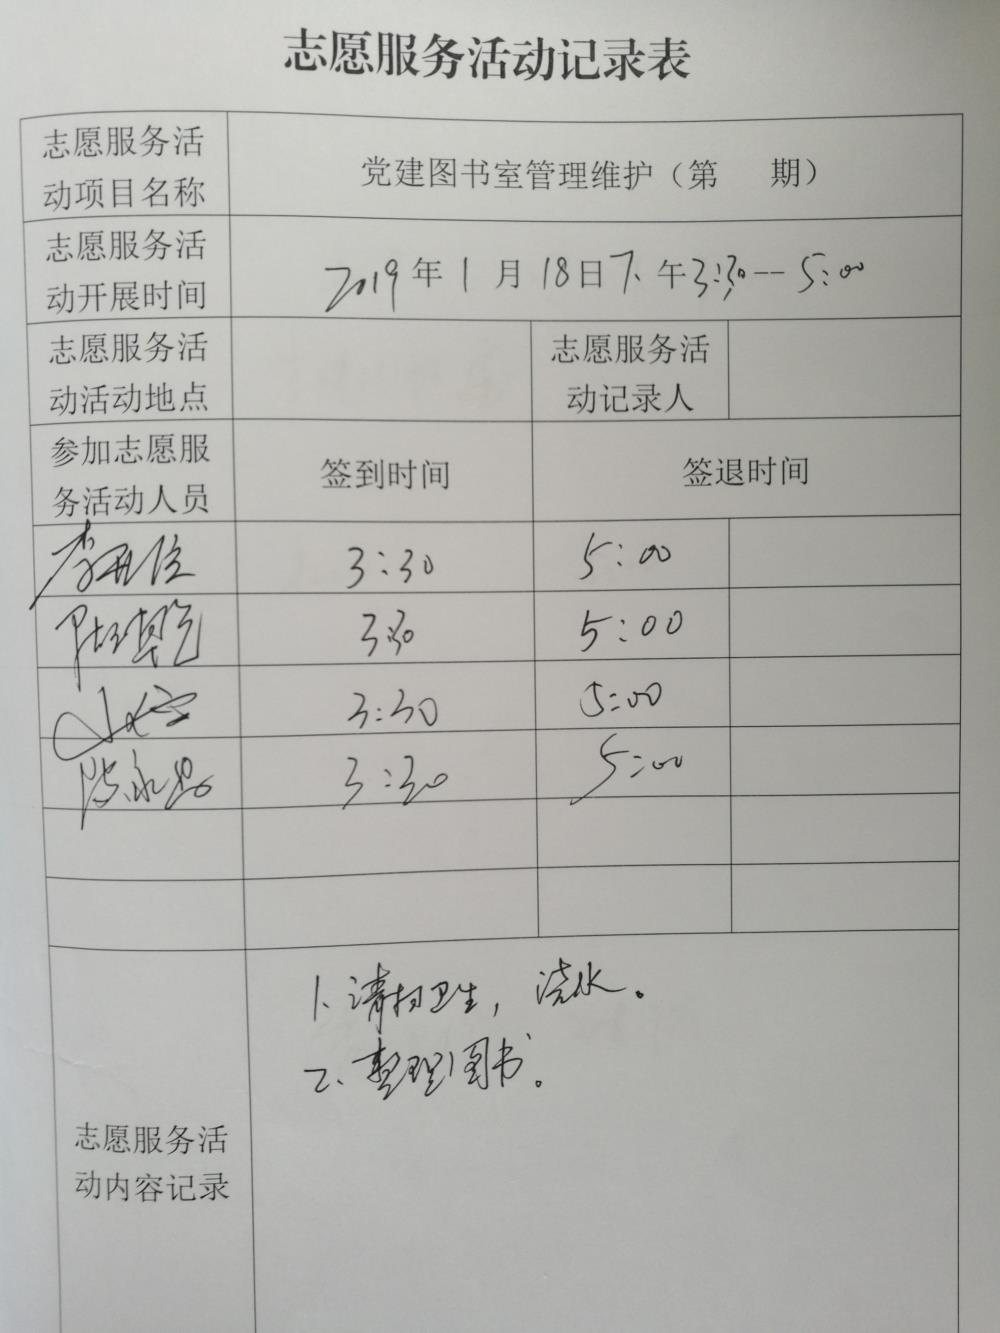 志愿服务活动记录表
志愿服务活
动项目名称
党建图书室管理维护（第 期）
志愿服务活
动开展时间
2019年1月18日下午3:30--5:00
志愿服务活
动活动地点
志愿服务活
动记录人
参加志愿服
务活动人员
签到时间
签退时间
3:30
5:00
3:30
5:00
3:30
5:00
陈永忠
3:30
5:00
志愿服务活
动内容记录
1、清扫卫生，浇水。
2、整理图书。